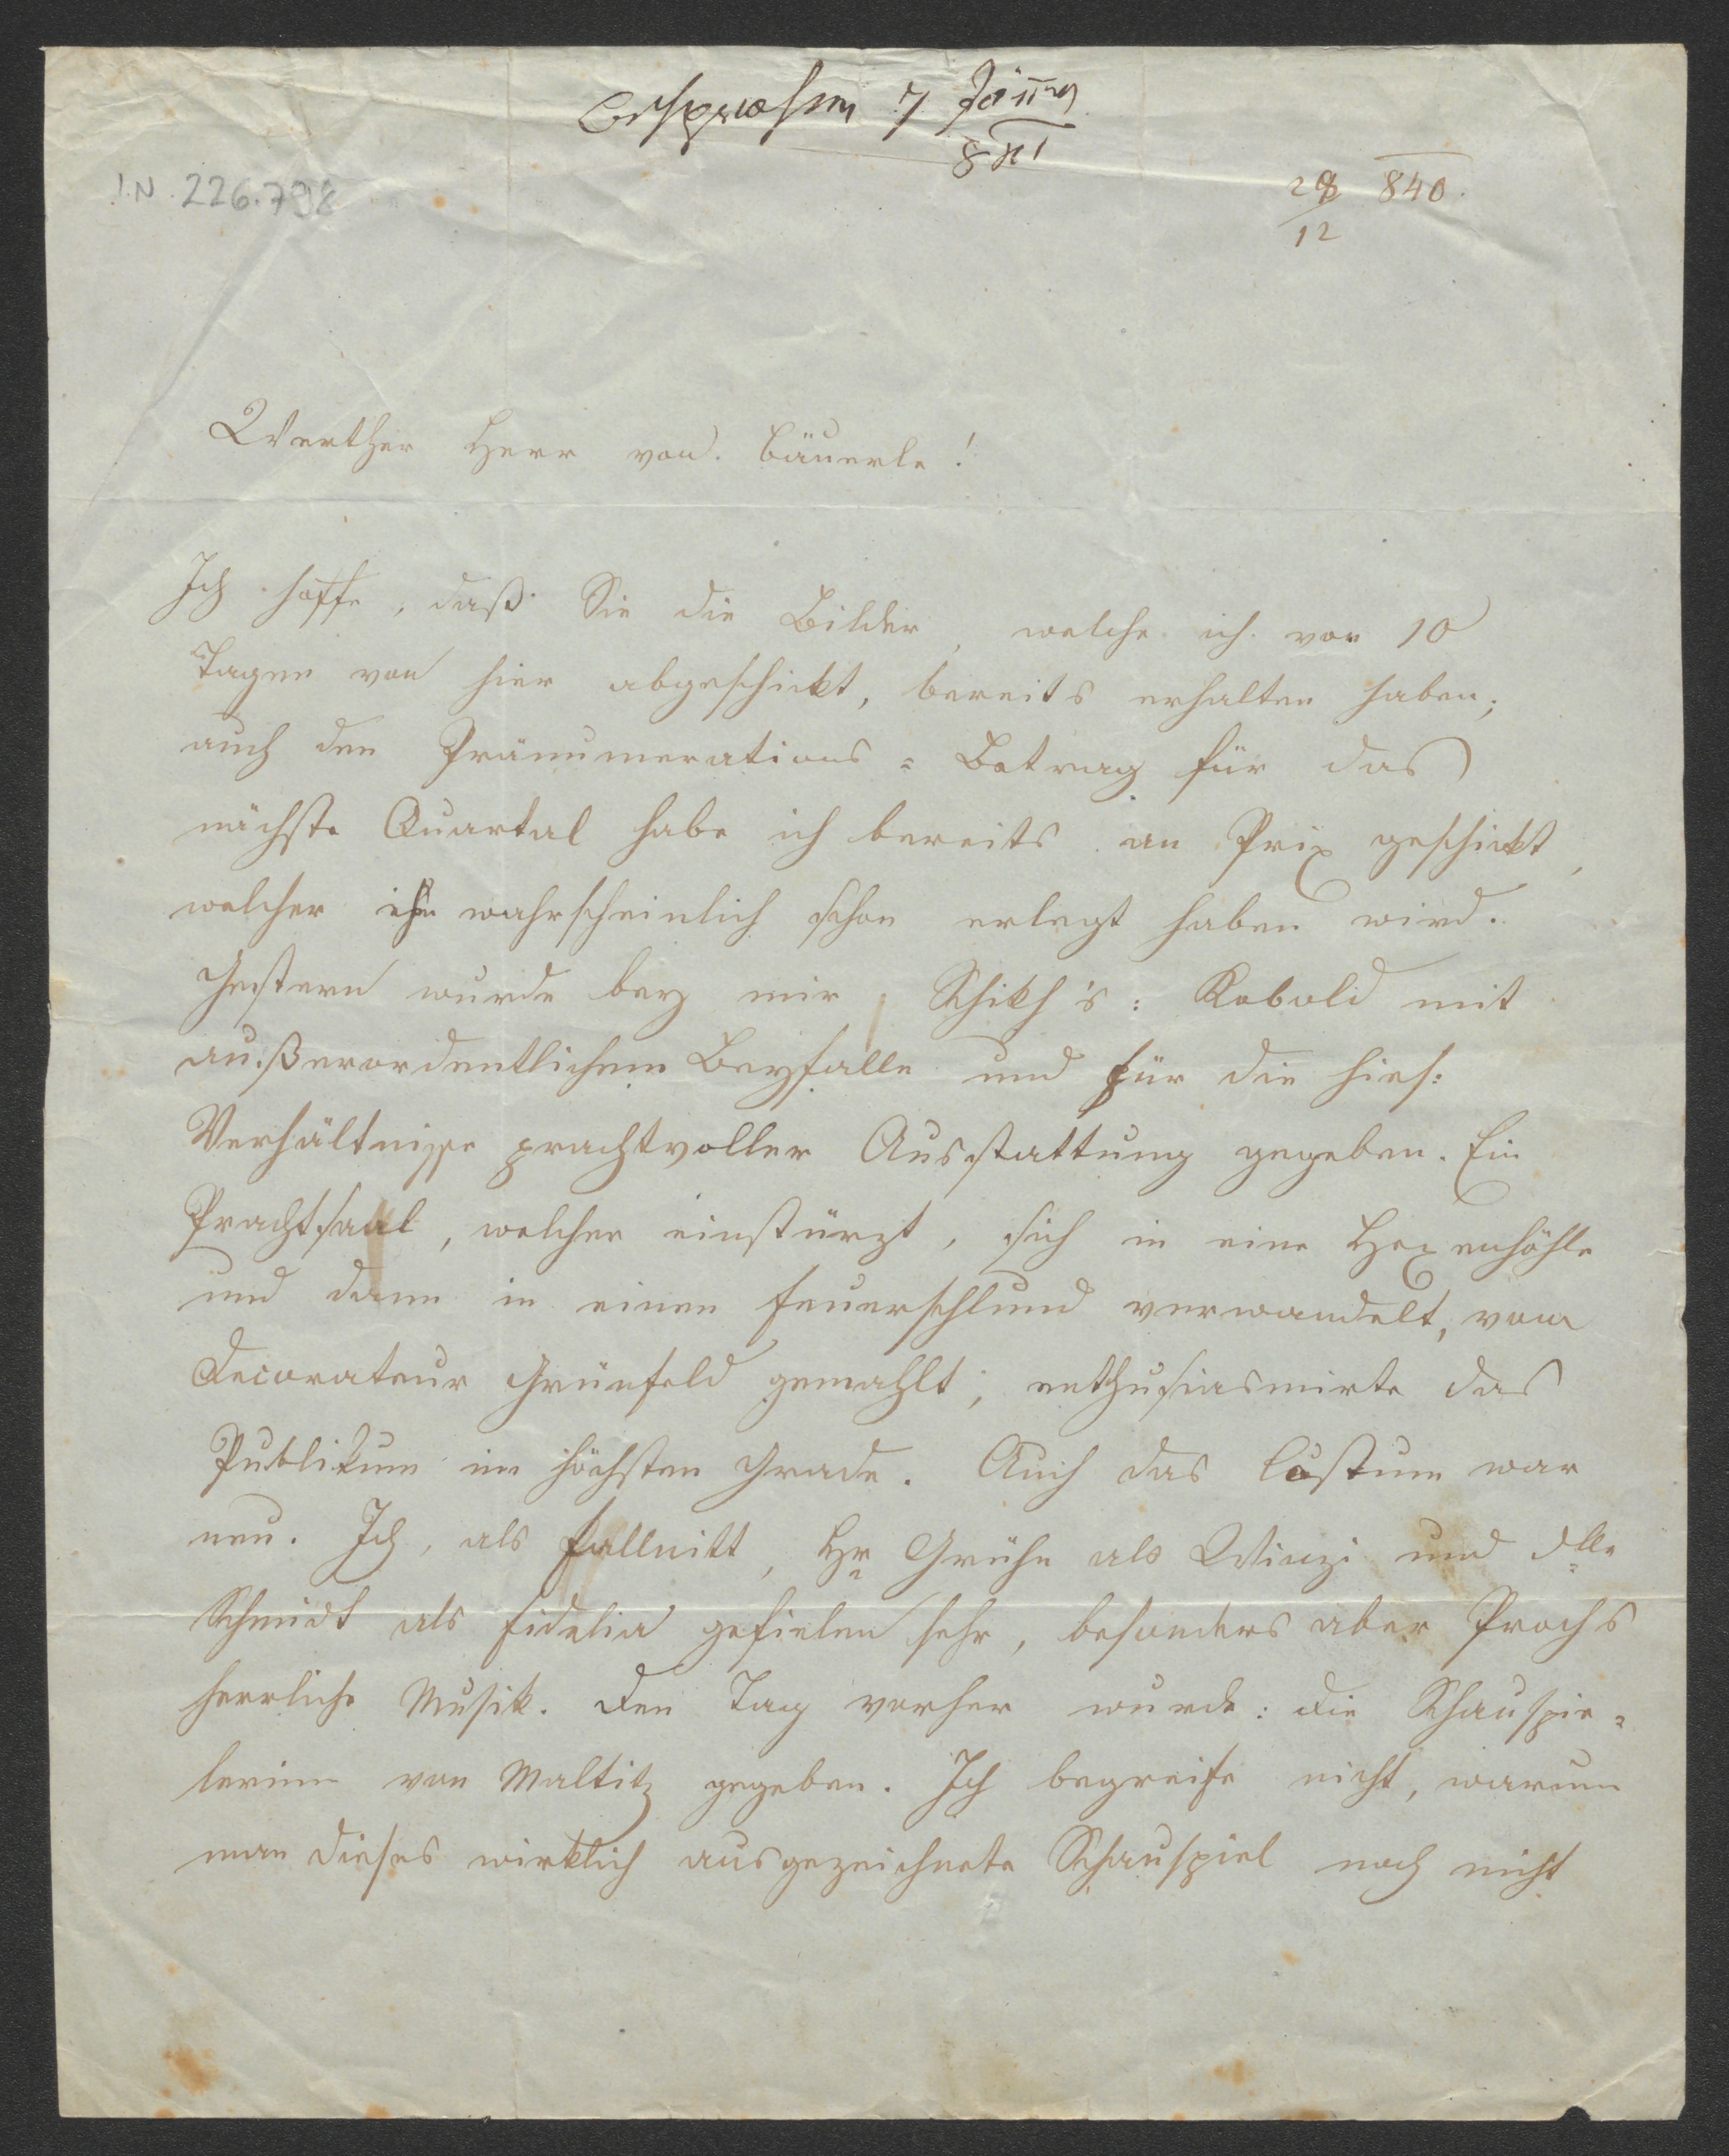 Besprochen 7 Jäner
841
I.N. 226.798
28/12 840.
Werther Herr von Bäuerle!
Ich hoffe, daß Sie die Bilder, welche ich vor 10
Tagen von hier abgeschickt, bereits erhalten haben;
auch den Pränumerations = Betrag für das
nächste Quartal habe ich bereits an Prix geschickt,
welcher ihn wahrscheinlich schon erlegt haben wird.
Gestern wurde bey mir Schikh's: Kobold mit
außerordentlichem Beyfalle und für die hies:
Verhältnisse prachtvoller Ausstattung gegeben. Ein
Prachtsaal, welcher einstürzt, sich in eine Hexenhöhle
und dann in einen Feuerschlund verwandelt, vom
Decorateur Grünfeld gemahlt, enthusiasmirte das
Publikum im höchsten Grade. Auch das Costum war
neu. Ich, als Fallnitt, Hr Grühn als Winzi und Dlle
Schmidt als Fidelia gefielen sehr, besonders aber Prochs
herrliche Musik. Den Tag vorher wurde: die Schauspie=
lerinn von Maltitz gegeben. Ich begreife nicht, warum
man dieses wirklich ausgezeichnete Schauspiel noch nicht